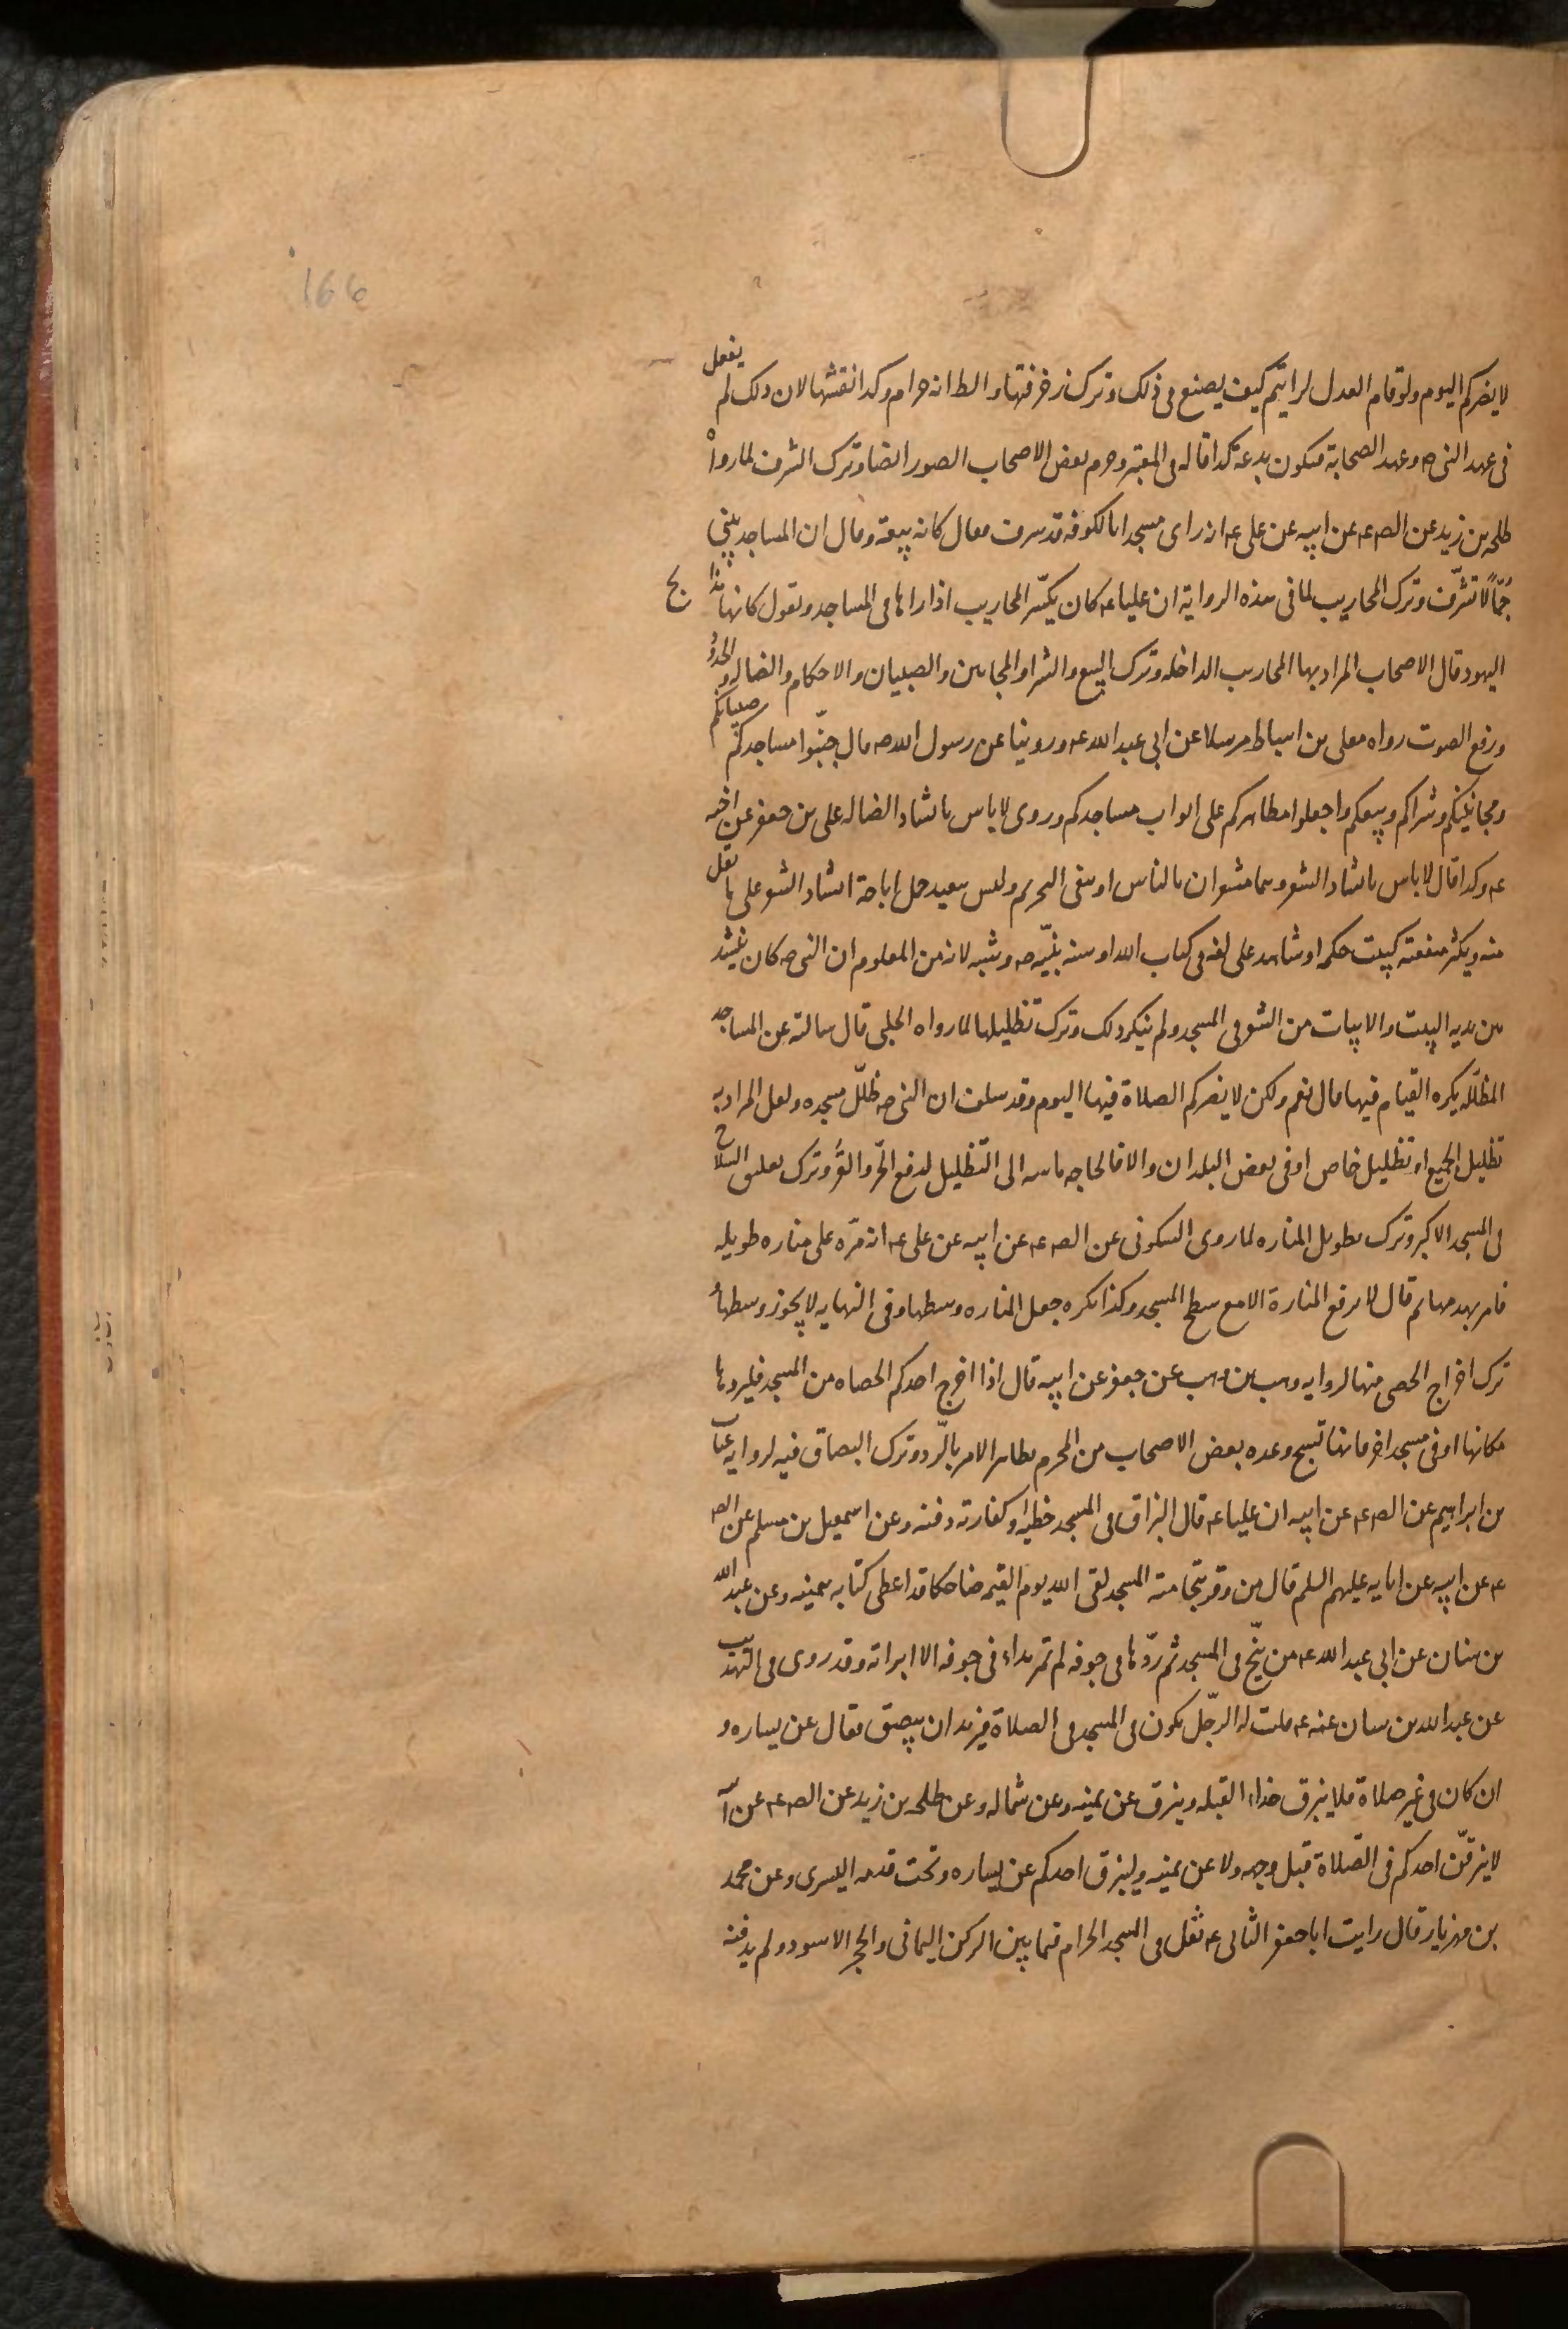 166
لا يضركم اليوم ولو قام العدل لرايتم كيف يصنع فى ذلك وترك زخرفتها والظ انه حرام وكذا نقشها لان ذلك لم يفعل
فى عهد النبى ص وعهد الصحابة فيكون بدعة كذا قاله فى المعتبر وحرم بعض الاصحاب الصور ايضا وترك الشرف لما رواه
طلحه بن زيد عن الص ع عن ابيه عن على ع انه راى مسجدا بالكوفه قد شرف فقال كانه بيعة وقال ان المساجد يبنى
جمّاً لا تشرّف وترك المحاريب لما فى هذه الرواية ان عليا ع كان يكسّر المحاريب اذا راها فى المساجد ويقول كانها مذابح
اليهود قال الاصحاب المراد بها المحاريب الداخله وترك البيع والشرا والمجانين والصبيان والاحكام والضاله والحدود
ورفع الصوت رواه على بن اسباط مرسلا عن ابى عبد الله ع وروينا عن رسول الله ص قال جنّبوا مساجدكم صبيانكم
ومجانينكم وشراكم وبيعكم واجعلوا مطاهركم على ابواب مساجدكم وروى لا باس بانشاد الضاله على بن جعفر عن اخيه
ع وكذا قال لا باس بانشاد الشعر وهما مشعران بالباس او بنفى التحريم وليس ببعيد حمل اباحة انشاد الشعر على ما يقل
منه ويكثر منفعته كبيت حكمه او شاهد على لغه فى كتاب الله او سنه نبيّه ص وشبه لانه من المعلوم ان النبى ص كان ينشد
بين يديه البيت والابيات من الشعر فى المسجد ولم ينكر ذلك وترك تظليلها لما رواه الحلبى قال سالته عن المساجد
المظلّله يكره القيام فيها قال نعم ولكن لا يضركم الصلاة فيها اليوم وقد سلف ان النبى ص ظلّل مسجده ولعل المراد به
تظليل الجميع او تظليل خاص او فى بعض البلدان والا فالحاجه ماسه الى التظليل لدفع الحرّ والقرّ وترك تعليق السلاح
فى المسجد الاكبر وترك تطويل المناره لما روى السكونى عن الص ع عن ابيه عن على ع انه مرّ على مناره طويله
فامر بهدمها ثم قال لا يرفع المنارة الا مع سطح المسجد وكذا يكره جعل المناره وسطها وفى النهايه لا يجوز وسطها
ترك اخراج الحصى منها لروايه وهب بن وهب عن جعفر عن ابيه قال اذا اخرج احدكم الحصاه من المسجد فليردها
مكانها او فى مسجد اخر فانها تسبح وعده بعض الاصحاب من المحرم لظاهر الامر بالرّد وترك البصاق فيه لروايه غياث
بن ابراهيم عن الص ع عن ابيه ان عليا ع قال البزاق فى المسجد خطيئه وكفارته دفنه وعن اسمعيل بن مسلم عن الص
ع عن ابيه عن ابايه عليهم السلم قال من وقر بنخامته المسجد لقى الله يوم القيمه ضاحكا قد اعطى كتابه بيمينه وعن عبد الله
بن سنان عن ابى عبد الله ع من تنخّع فى المسجد ثم ردّها فى جوفه لم تمر بداء فى جوفه الا ابراته وقد روى فى التهذيب
عن عبد الله بن سنان عنه ع قلت له الرجّل يكون فى المسجد فى الصلاة فيريد ان يبصق فقال عن يساره و
ان كان فى غير صلاة فلا يبزق حذاء القبله ويبزق عن يمينه وعن شماله وعن طلحه بن زيد عن الص ع عن ابيه
لا يبزقنّ احدكم فى الصّلاة قبل وجهه ولا عن يمينه وليبزق احدكم عن يساره وتحت قدمه اليسرى وعن محمد
بن مهزيار قال رايت ابا جعفر الثانى ع تفل فى المسجد الحرام فيما بين الركن اليمانى والحجر الاسود ولم يدفنه